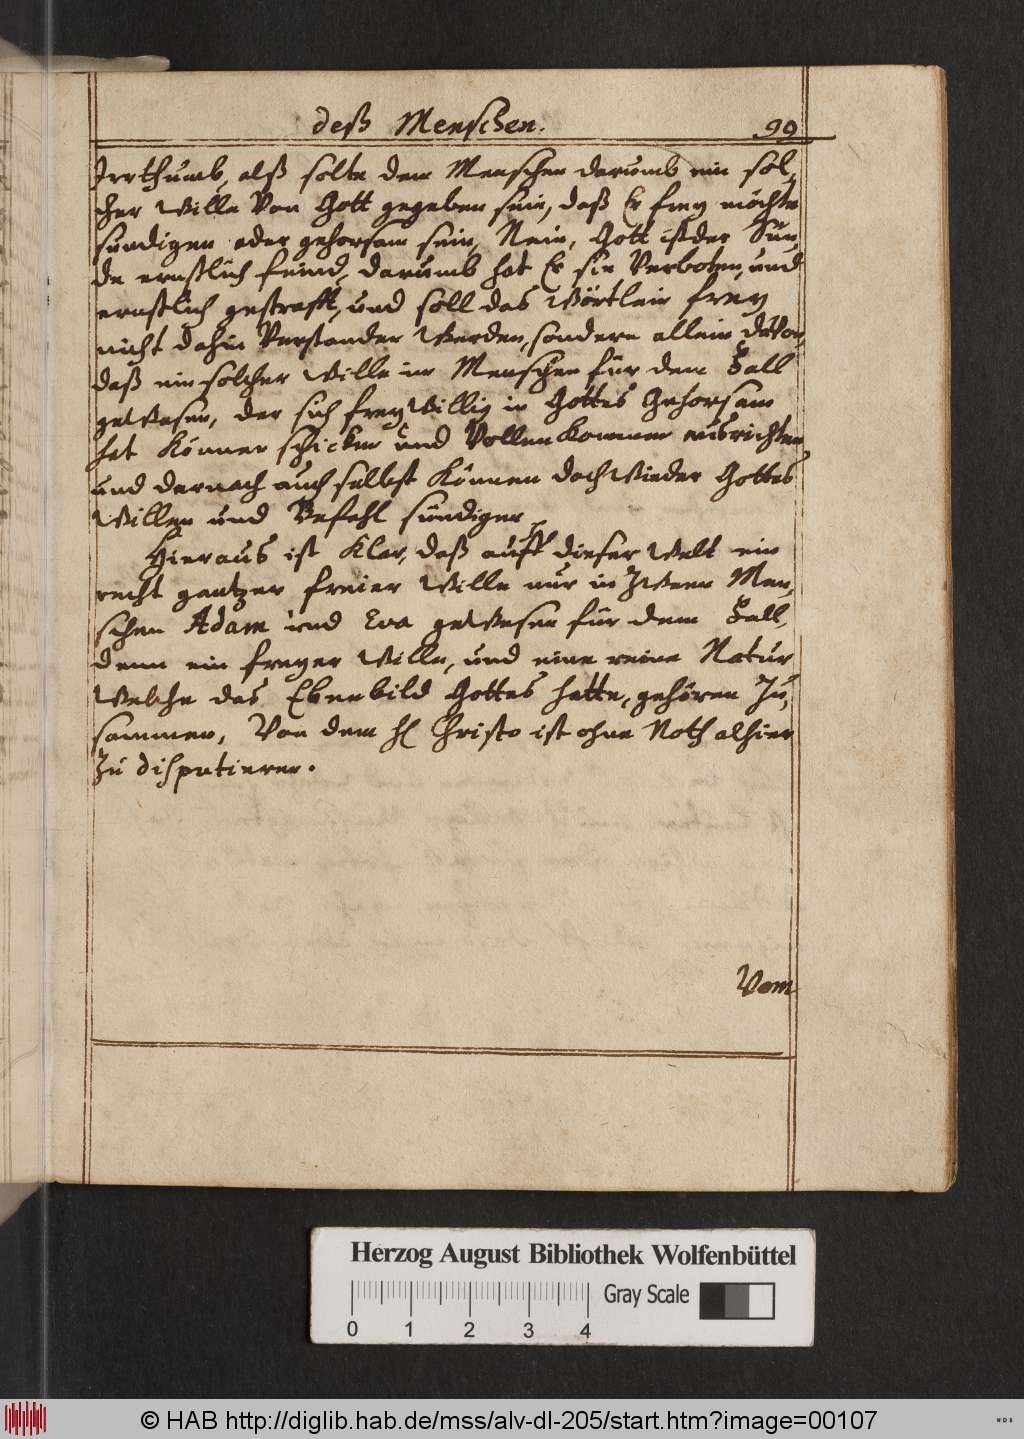 deß Menschen.
99
Irrthumb, alß solte dem Menschen darumb ein sol,
cher Wille Von Gott gegeben sein, daß Er frey möchte
sündigen oder gehorsam sein, Nein, Gott ist der Sün,
de ernstlich feind, darumb hat Er sie Verboten, und
ernstlich gestrafft, und soll das Wörtlein frey
nicht dahin Verstanden Werden, sondern allein davon,
daß ein solcher Wille im Menschen für dem Fall
geWesen, der sich freyWillig in Gottes Gehorsam
hat Können schicken und Vollenkommen ausrichten
und darnach auch selbst Können doch Wieder Gottes
Willen und Befehl sündigen.
Hieraus ist Klar, daß auff dieser Welt ein
recht gantzer freier Wille nur in zWeen Men,
schen Adam und Eva geWesen für dem Fall,
denn ein freyer Wille, und eine reine Natur
Welche das Ebenbild Gottes hatte, gehören zu,
sammen, Von dem H Christo ist ohne Noth alhier
zu disputieren.
Vom
Herzog August Bibliothek Wolfenbüttel
Gray Scale
0 1 2 3 4
© HAB http://diglib.hab.de/mss/alv-dl-205/start.htm?image=00107